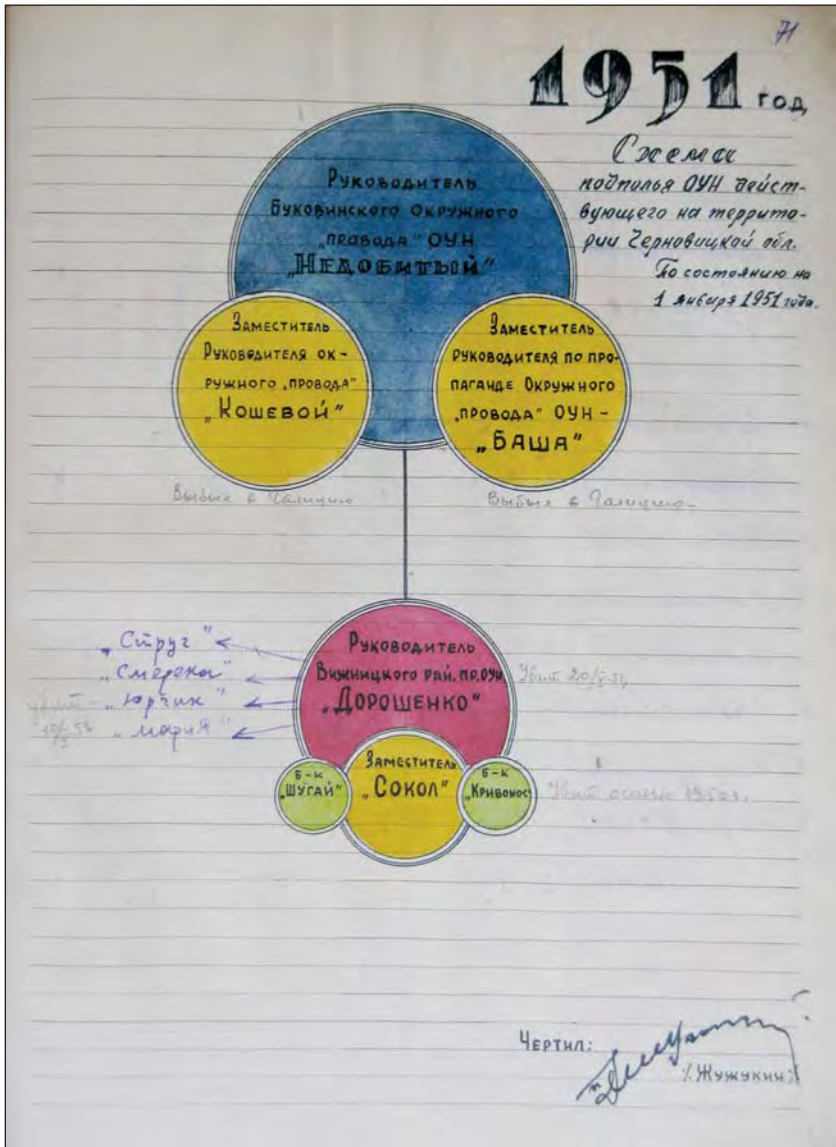 71
1951 год,
Схема
подполья ОУН дейст-
вующего на террито-
рии Черновицкой обл.
По состоянию на
1 января 1951 года.
Руководитель
Буковинского Окружного
„провода" ОУН
„Недобитый"
Заместитель
Руководителя ок-
ружного „провода"
„Кошевой"
Заместитель
руководителя по про-
паганде Окружного
„провода" ОУН -
„Баша"
Выбыл в Галицию
Выбыл в Галицию-
Руководитель
Вижницкого рай. пр. ОУН
„Дорошенко"
„Струг"
„Смерека"
„Юрчик"
„Мария"
убит -
Убит
Заместитель
„Сокол"
б-к
„Шугай"
б-к
„Кривонос"
Убит осенью
Чертил:
/. Жужукин /